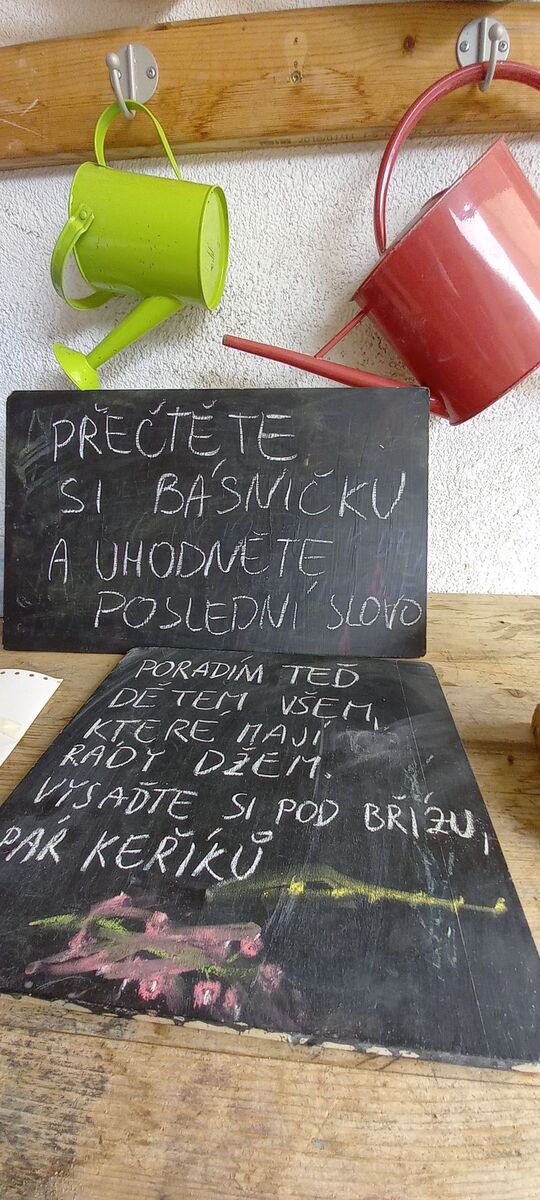 PŘEČTĚTE
SI BÁSNIČKU
A UHODNĚTE
POSLEDNÍ SLOVO
PORADÍM TEĎ
DĚTEM VŠEM,
KTERÉ MAJÍ
RÁDY DŽEM.
VYSAĎTE SI POD BŘÍZU,
PÁR KEŘÍKŮ